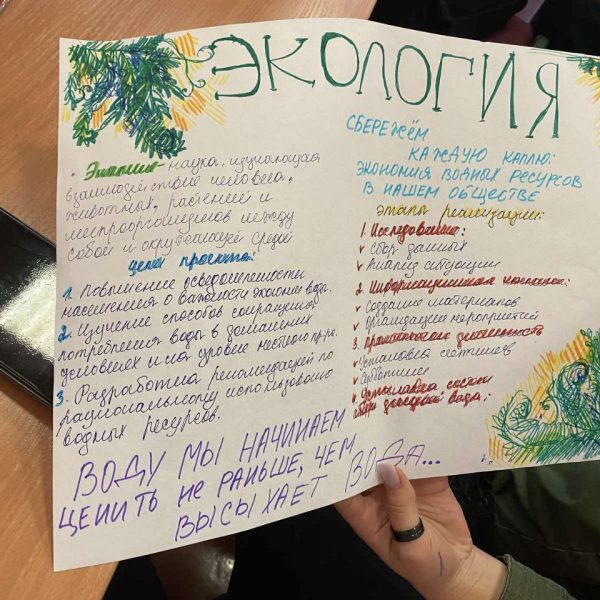 ЭКОЛОГИЯ
• Экология- наука, изучающая
взаимодействие человека,
животных, растений и
микроорганизмов между
собой и окружающей средой
цели проекта:
1. Повышение осведомленности
населения о важности экономии воды.
2. Изучение способов сокращения
потребления воды в домашних
условиях и на уровне местного
3. Разработка рекомендаций по
рациональному использованию
водных ресурсов.
ВОДУ МЫ НАЧИНАЕМ
ЦЕНИТЬ НЕ РАНЬШЕ, ЧЕМ
ВЫСЫХАЕТ ВОДА...
СБЕРЕЖЁМ
КАЖДУЮ КАПЛЮ:
ЭКОНОМИЯ ВОДНЫХ РЕСУРСОВ
В НАШЕМ ОБЩЕСТВЕ
этапы реализации:
1. Исследование:
v Сбор данных
v Анализ ситуации
2. Информационная кампания:
v Создание материалов
v мероприятий
3. Практическая деятельность
v Установка
v Субботник
v Установка систем
сбора дождевой воды;